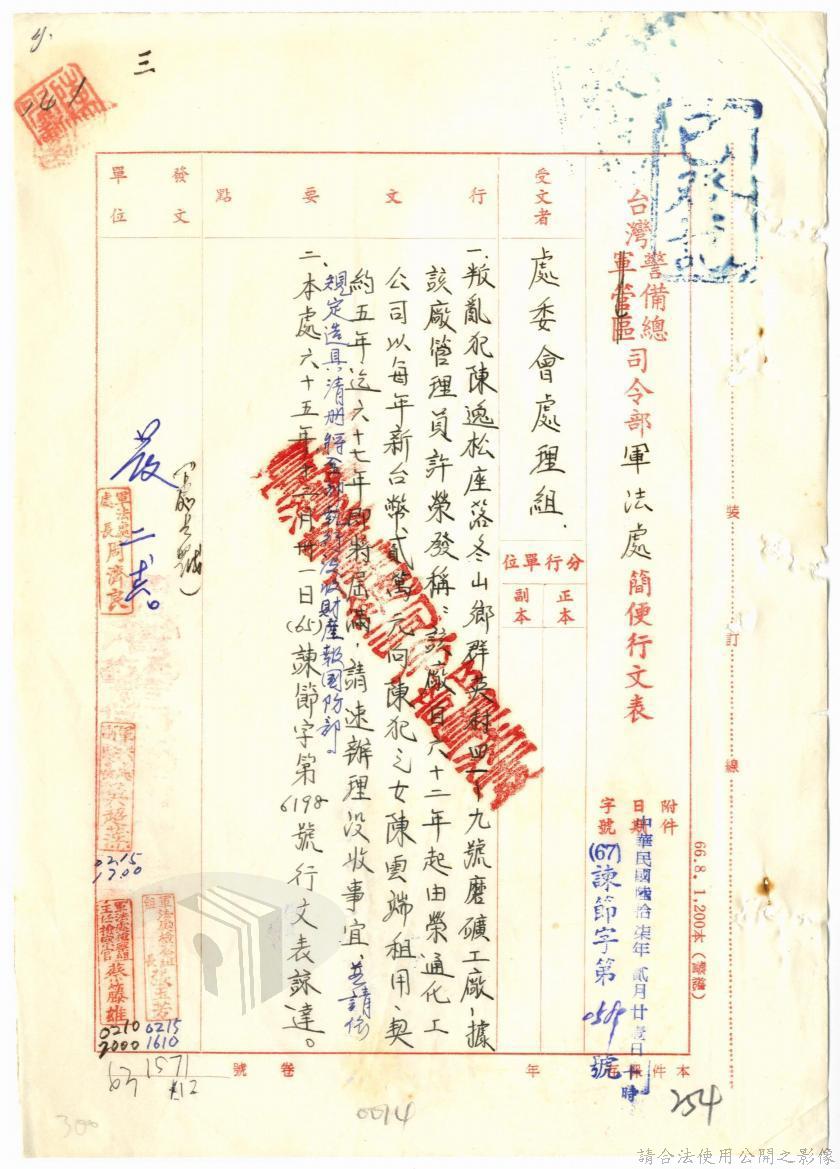 三
台灣警備總司令部軍法處簡便行文表
軍管區
附件
日期 中華民國陸拾柒年貳月廿壹日十時
字號 (67)諫節字第0589號
受文者
處委會處理組.
分行單位
正本
副本
行文要點
一.叛亂犯陳逸松座落冬山鄉群英村四一九號磨礦工廠,據
該廠管理員許榮發稱:該廠自六十二年起由榮通化工
公司以每年新台幣貳萬元向陳犯之女陳雲端租用,契
約五年迄六十七年即將屆滿,請速辦理沒收事宜、並請依
規定造具清册
沒收財產報國防部。
二、本處六十五年十二月卅一日(65)諫節字第6198號行文表諒達。
發文單位
軍法處處長周濟良
0215
1700
軍法處檢察組
主任檢察官蔡藤雄
0210
2000
0215
1610
年
號
卷
本件保
1571
63
12
66.8.1,200本
裝
訂
線
254
0014
300
141
請合法使用公開之影像